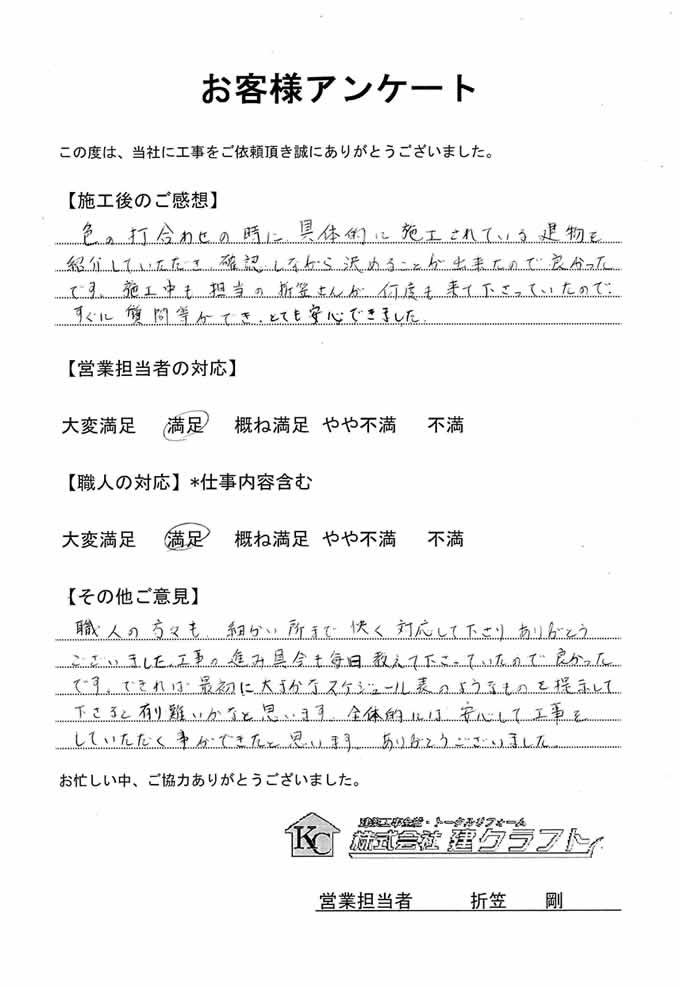 お客様アンケート
この度は、当社に工事をご依頼頂き誠にありがとうございました。
【施工後のご感想】
色の打合わせの時に、具体的に施工されている建物を
紹介していただき、確認しながら決めることが出来たので良かった
です。施工中も担当の折笠さんが何度も来て下さっていたので、
すぐに質問等ができ、とても安心できました。
【営業担当者の対応】
大変満足 満足 概ね満足 やや不満 不満
【職人の対応】*仕事内容含む
大変満足 満足 概ね満足 やや不満 不満
【その他ご意見】
職人の方々も、細かい所まで快く対応して下さりありがとう
ございました。工事の進み具合も毎日教えて下さっていたので良かった
です。できれば最初に大まかなスケジュール表のようなものを提示して
下さると有難いかなと思います。全体的には安心して工事を
していただく事ができたと思います。ありがとうございました。
お忙しい中、ご協力ありがとうございました。
KC
建築工事全般・トータルリフォーム
株式会社 建クラフト
営業担当者 折笠 剛